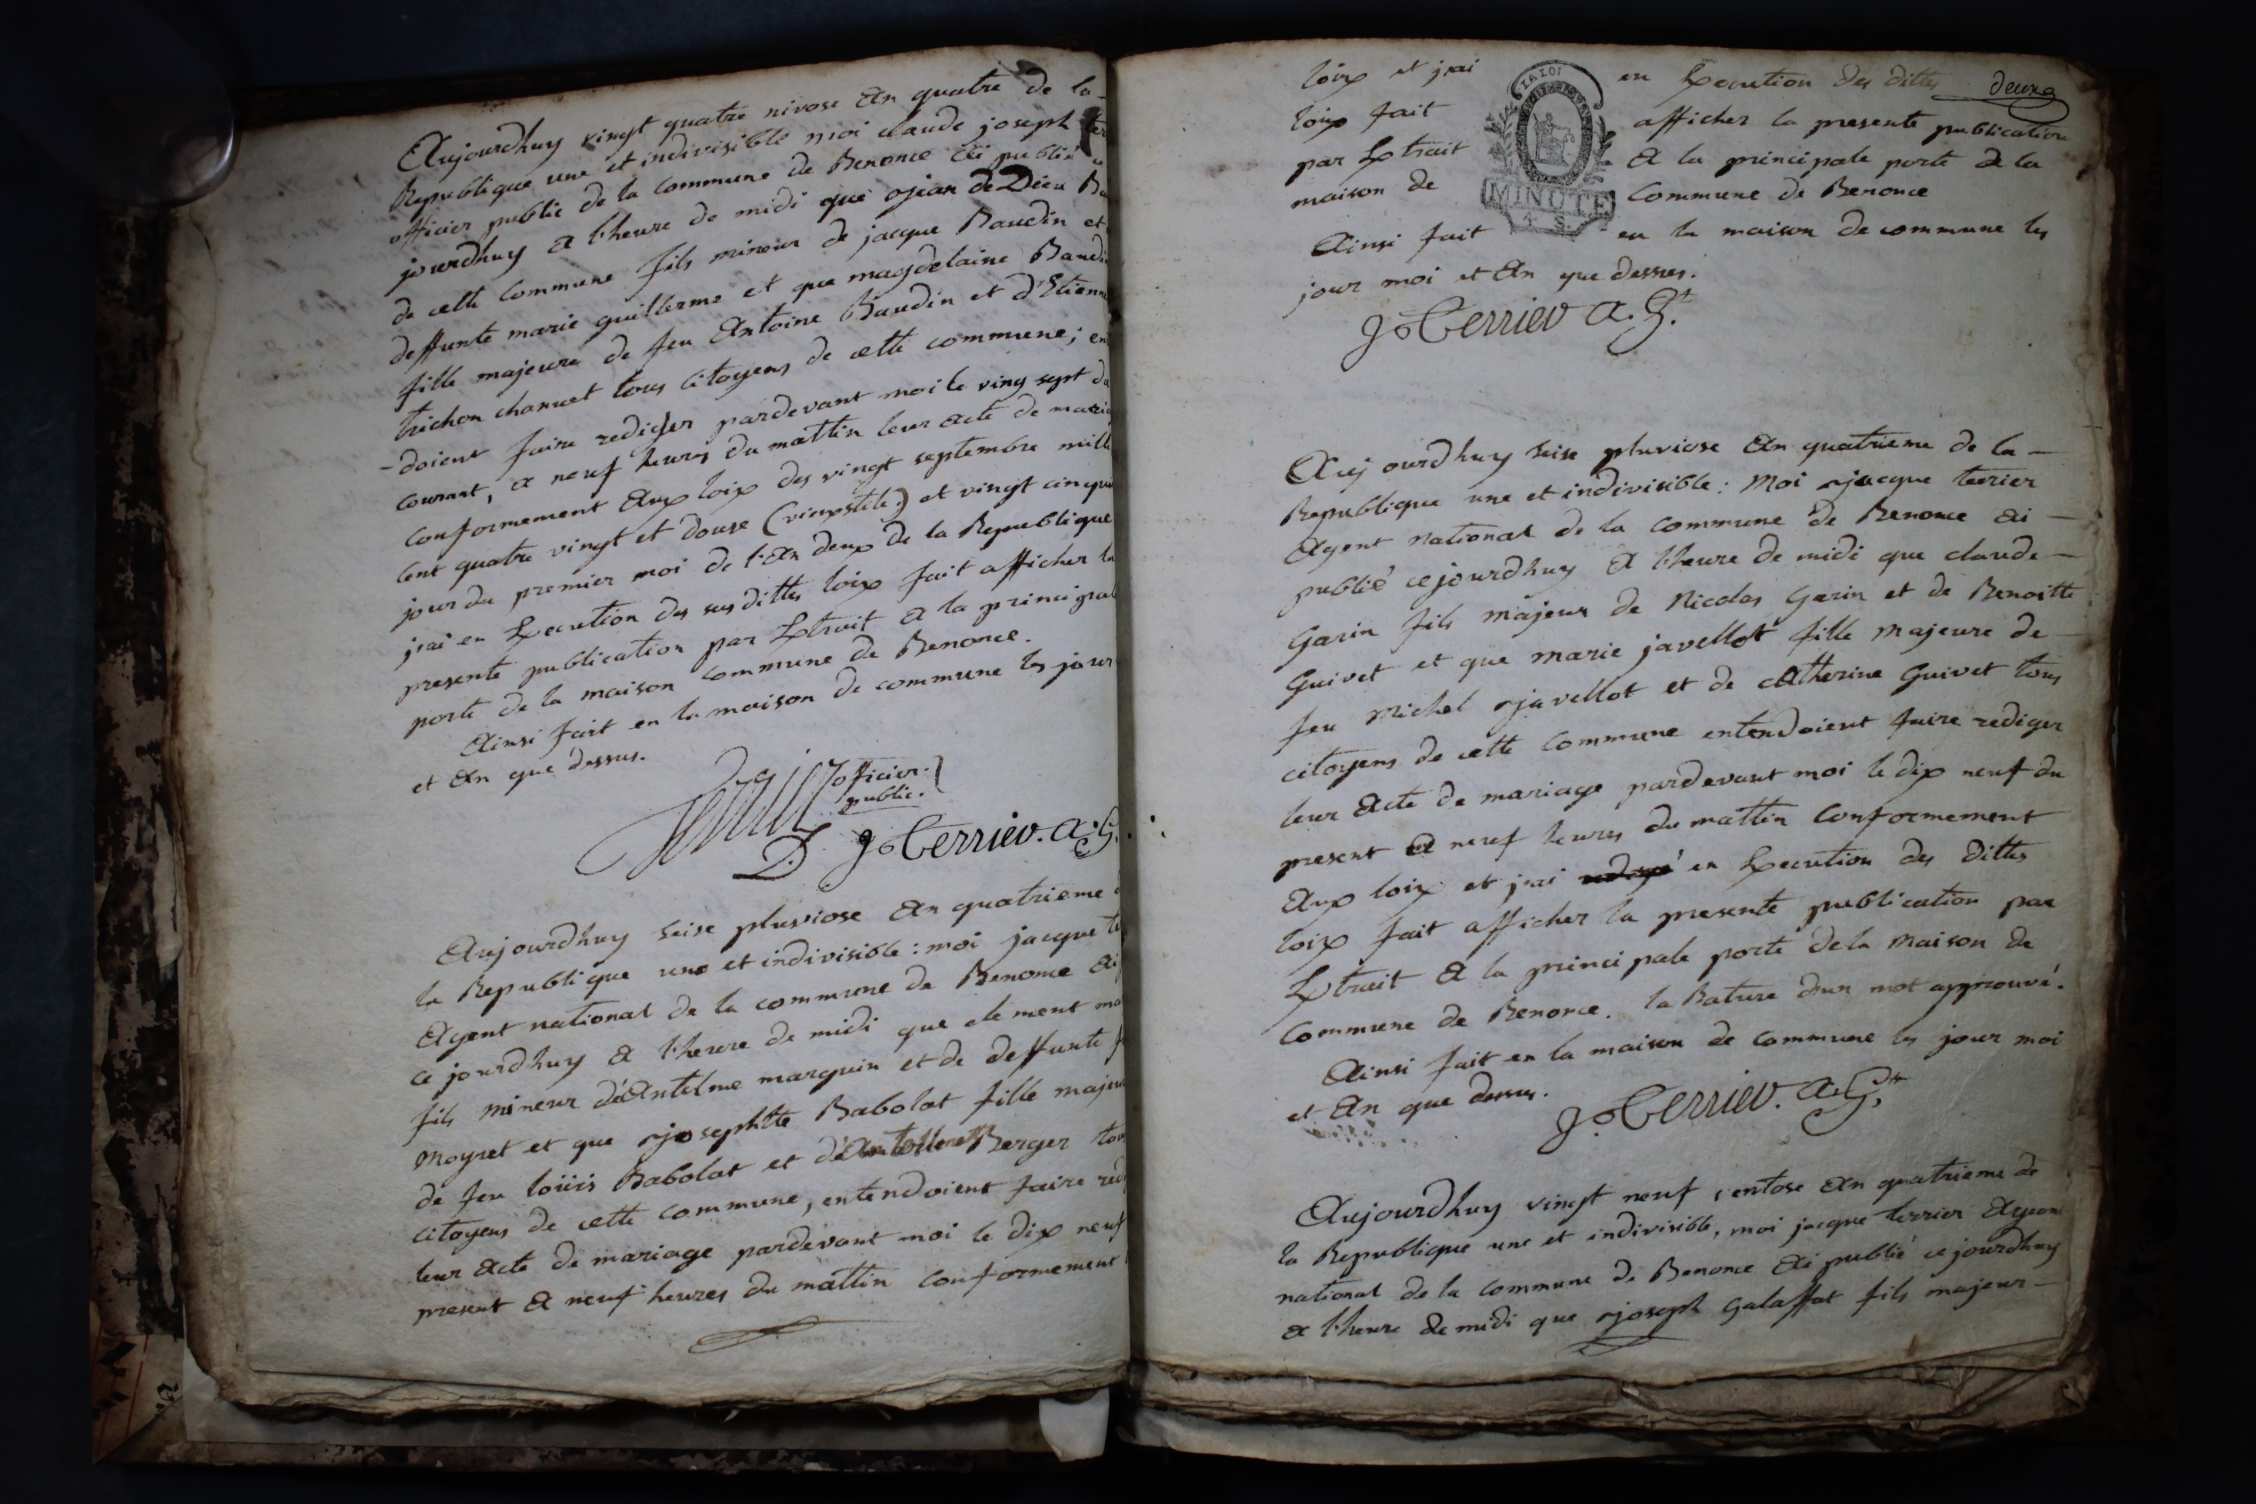 Aujourdhuy vingt quatre nivose An quatre de la
Republique une et indivisible moi claude joseph
officier public de la commune de Benonce Ai publié
jourdhuy a l'heure de midi que jean de Dieu
de cette commune fils mineur de jacque Baudin et
deffunte marie guillerme et que magdelaine
fille majeure de feu Antoine Baudin et d'Etienne
trichon charvet tous citoyens de cette commune; en
-doient faire rediger pardevant moi le ving sept du
courant, a neuf heures du mattin leur acte de
conformement Aux loix des vingt septembre mille
cent quatre vingt et douse (vieustile) et vingt
jour du premier moi de l'An deux de la Republique
j'ai en Execution des sus dittes loix fait afficher la
presente publication par Extrait a la principal
porte de la maison commune de Benonce.
Ainsi fait en la maison de commune les jour
et An que dessus.
officier
public.
J. Terrier. a. g.
Aujourdhuy seise pluviose An quatrieme
la Republique une et indivisible: moi jacque
Agent national de la commune de Benonce Ai
ce jourdhuy a l'heure de midi que clement
fils mineur d'Antelme marquin et de deffunte
moyret et que josephte Babolat fille
de feu loüis Babolat et Berger
citoyens de cette commune, entendoient faire
leur Acte de mariage pardevant moi le dix neuf
present a neuf heures du mattin conformement
loix et j'ai en Execution des dittes deux
loix fait afficher la presente publication
par Extrait a la principale porte de la
maison de commune de Benonce
MINUTE
4. S.
Ainsi fait en la maison de commune les
jour moi et An que dessus.
J. Terrier a. gt.
Aujourdhuy seise pluviose An quatrieme de la
Republique une et indivisible: moi jacque terrier
Agent national de la commune de Benonce Ai
publié ce jourdhuy a l'heure de midi que claude
Garin fils majeur de Nicolas Garin et de Benoitte
Guivet et que marie javellot fille majeure de
feu Michel javellot et de catherine Guivet tous
citoyens de cette commune entendoient faire rediger
leur Acte de mariage pardevant moi le dix neuf du
present a neuf heures du mattin conformement
Aux loix et j'ai en Execution des dittes
loix fait afficher la presente publication par
Extrait a la principale porte de la maison de
commune de Benonce. la Rature d'un mot approuvé.
Ainsi fait en la maison de commune les jour moi
et An que dessus.
J. Terrier. a. gt.
Aujourdhuy vingt neuf ventose An quatrieme de
la Republique une et indivisible, moi jacque terrier Agent
national de la commune de Benonce Ai publié ce jourdhuy
a l'heure de midi que joseph Galaffat fils majeur